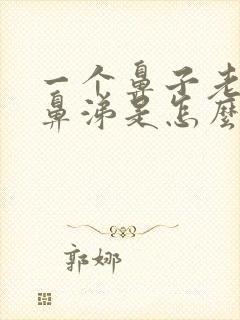 一个鼻子老
鼻涕是怎麼
郭娜